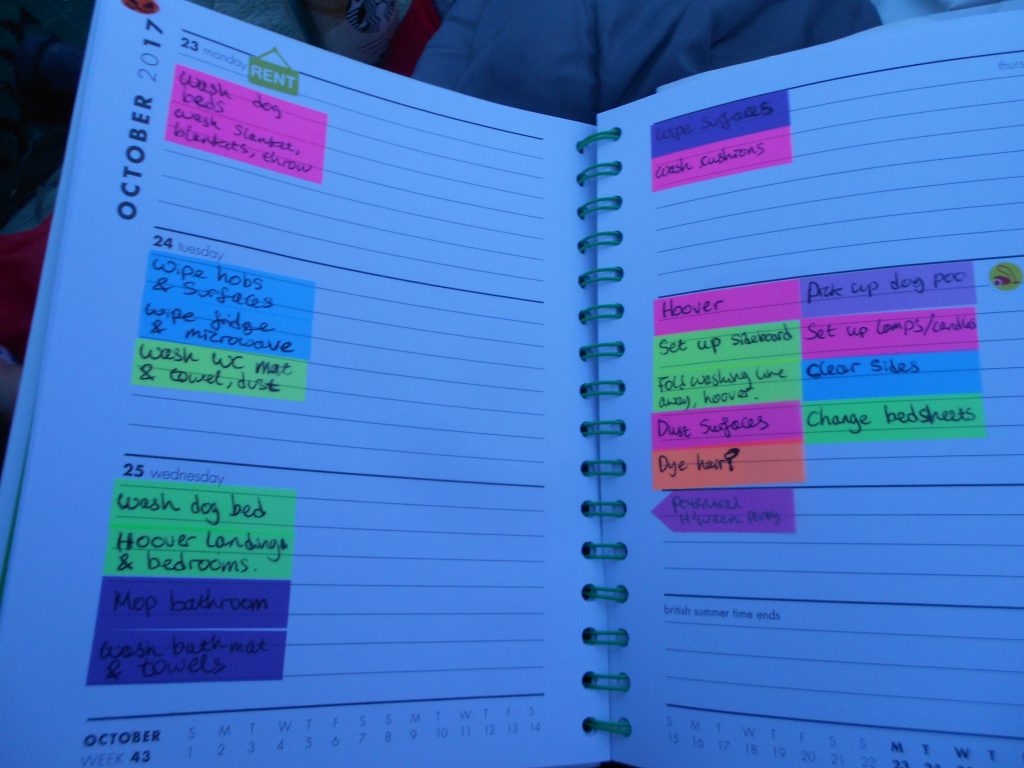 OCTOBER 2017
23 monday
RENT
wash dog
beds
wash slanket,
blankets, throw
24 tuesday
wipe hobs
& surfaces
wipe fridge
& microwave
wash WC mat
& towel, dust
25 wednesday
wash dog bed
Hoover landing
& bedrooms.
Mop bathroom
wash bath mat
& towels
OCTOBER
WEEK 43
S M T W T F S S M T W T F S
1 2 3 4 5 6 7 8 9 10 11 12 13 14
thurs
wipe surfaces
wash cushions
Hoover
Set up sideboard
Fold washing line
away, hoover.
Dust surfaces
Dye hair?
Pick up dog poo
Set up lamps/candles
Clear sides
Change bedsheets
Potential
H'ween party
british summer time ends
S M T W T F S S M T W
15 16 17 18 19 20 21 22 23 24